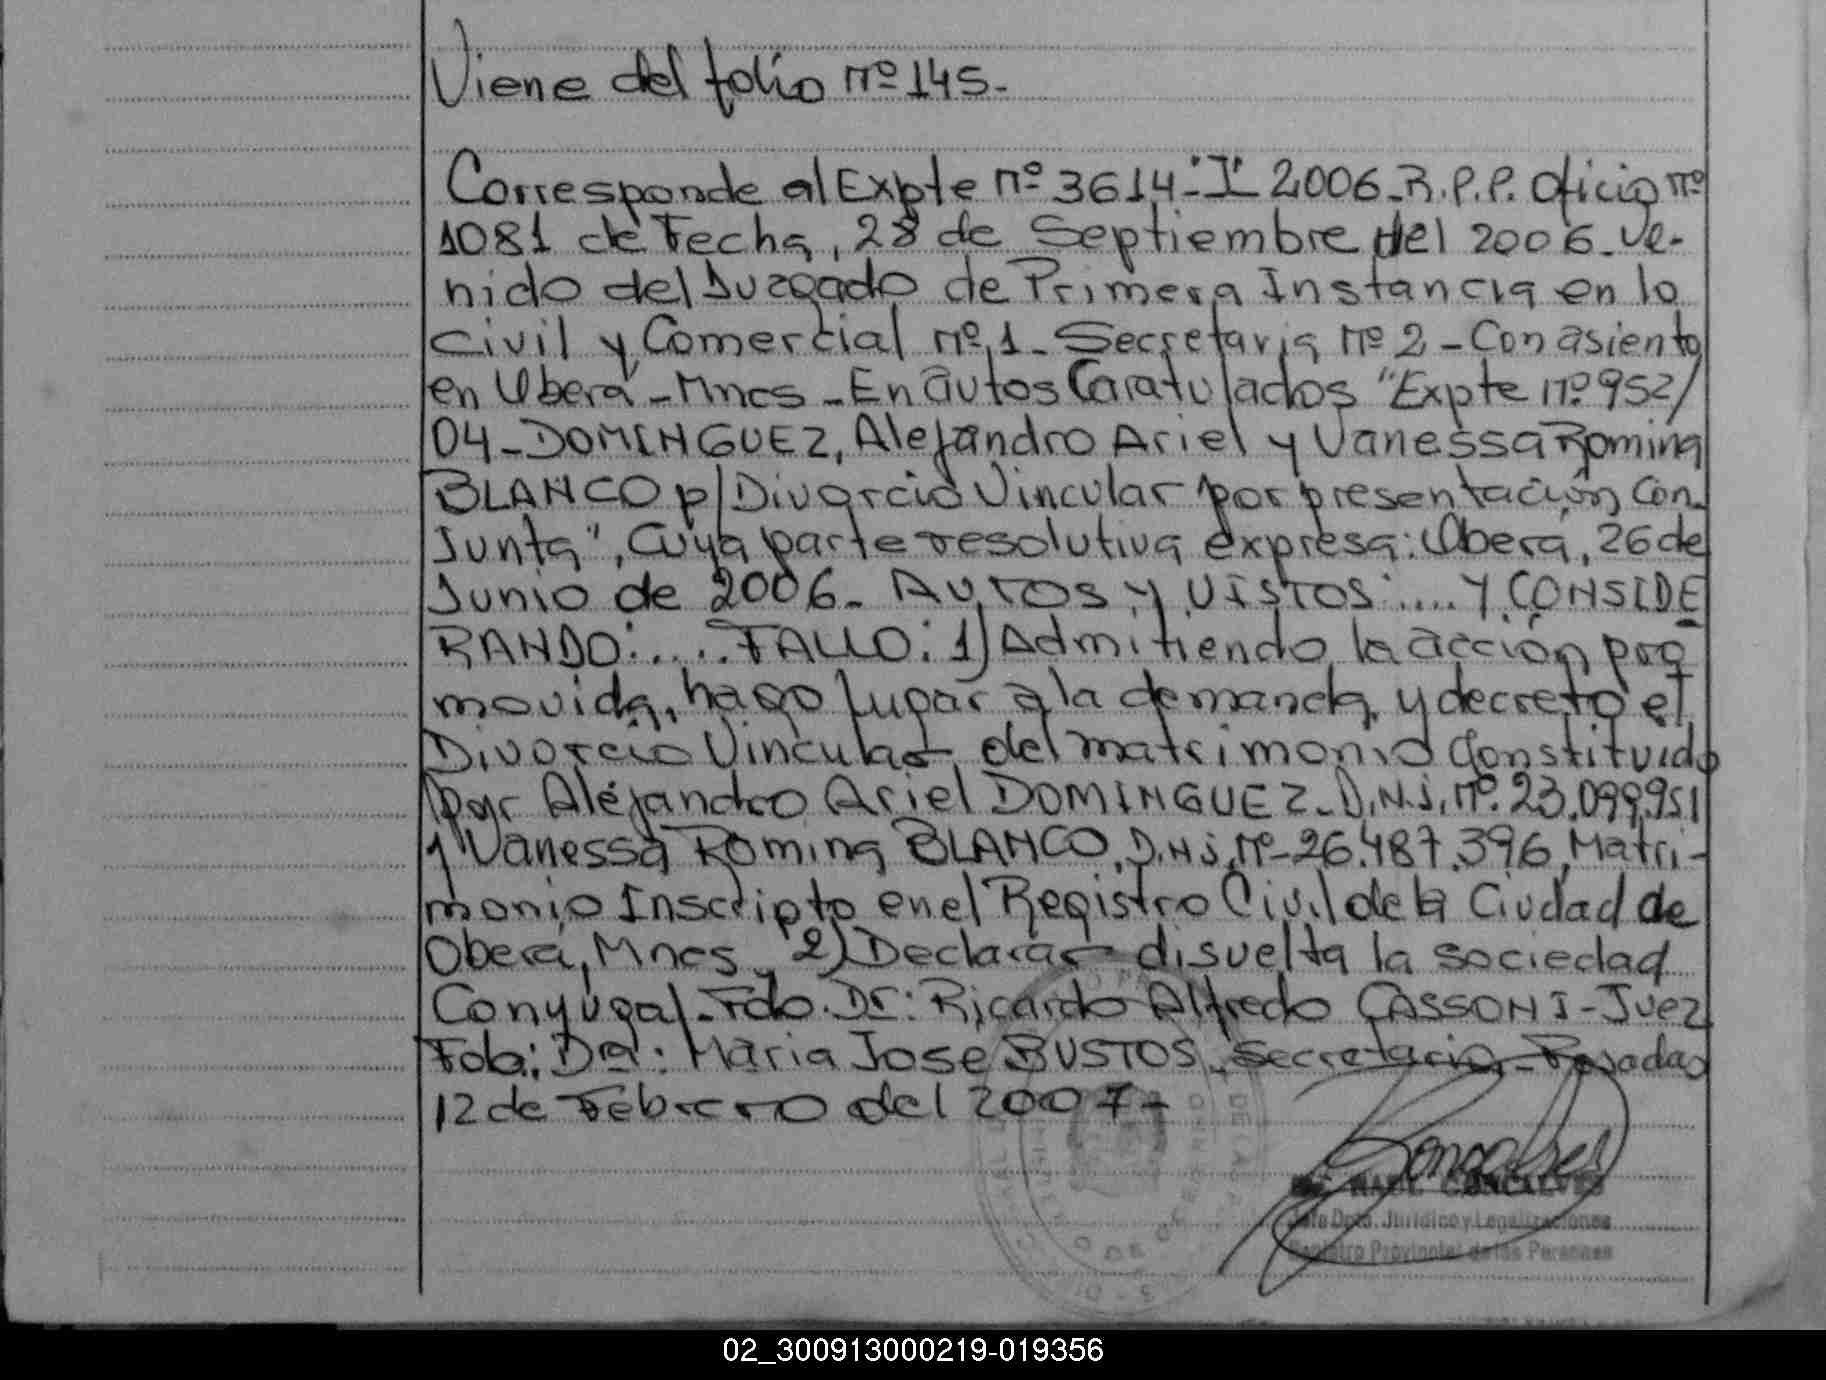 Viene del folio nº 145.
Corresponde al Expte nº 3614-"I" 2006-R.P.P. Oficio nº
1081 de Fecha, 28 de Septiembre del 2006. Ve-
nido del Juzgado de Primera Instancia en lo
Civil y Comercial nº 1- Secretaria nº 2 - Con asiento
en Oberá - Mnes - En autos Caratulados "Expte nº 952/
04-DOMINGUEZ, Alejandro Ariel y Vanessa Romina
BLANCO p/Divorcio Vincular por presentación Con-
Junta", Cuya parte resolutiva expresa: Oberá, 26 de
Junio de 2006- AUTOS Y VISTOS:.... Y CONSIDE
RANDO:.....FALLO: 1) Admitiendo la acción pro
movida, hago lugar a la demanda, y decreto el
Divorcio Vincular del matrimonio Constituido
por Alejandro Ariel DOMINGUEZ-D.N.I. nº 23.099.951
y Vanessa Romina BLANCO, D.N.I. nº-26.487.396, Matri-
monio Inscripto en el Registro Civil de la Ciudad de
Oberá, Mnes, 2) Declarar disuelta la sociedad
Conyugal-Fdo. Dr: Ricardo Alfredo CASSONI-Juez
Fda: Dra: Maria Jose BUSTOS, Secretaria-Posadas
12 de Febrero del 2007-
Gonçalves
GONCALVES
Jefe Dpto. Jurídico y Legalizaciones
Registro Provincial de las Personas
02_300913000219-019356